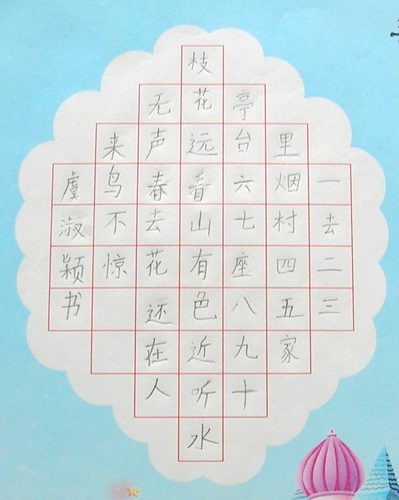 一去二三
里烟村四五家
亭台六七座八九十
枝花远看山有色近听水
无声春去花还在人
来鸟不惊
虞淑颖书